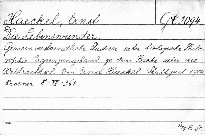 Haeckel, Ernst G? 2094
Die Lebenswunder.
Gemeinverständliche Studien über biologische Philo-
sophie. Ergänzungsband zu dem Buche über die
Welträthsel von Ernst Haeckel. Stuttgart 1904
Kroener 8°